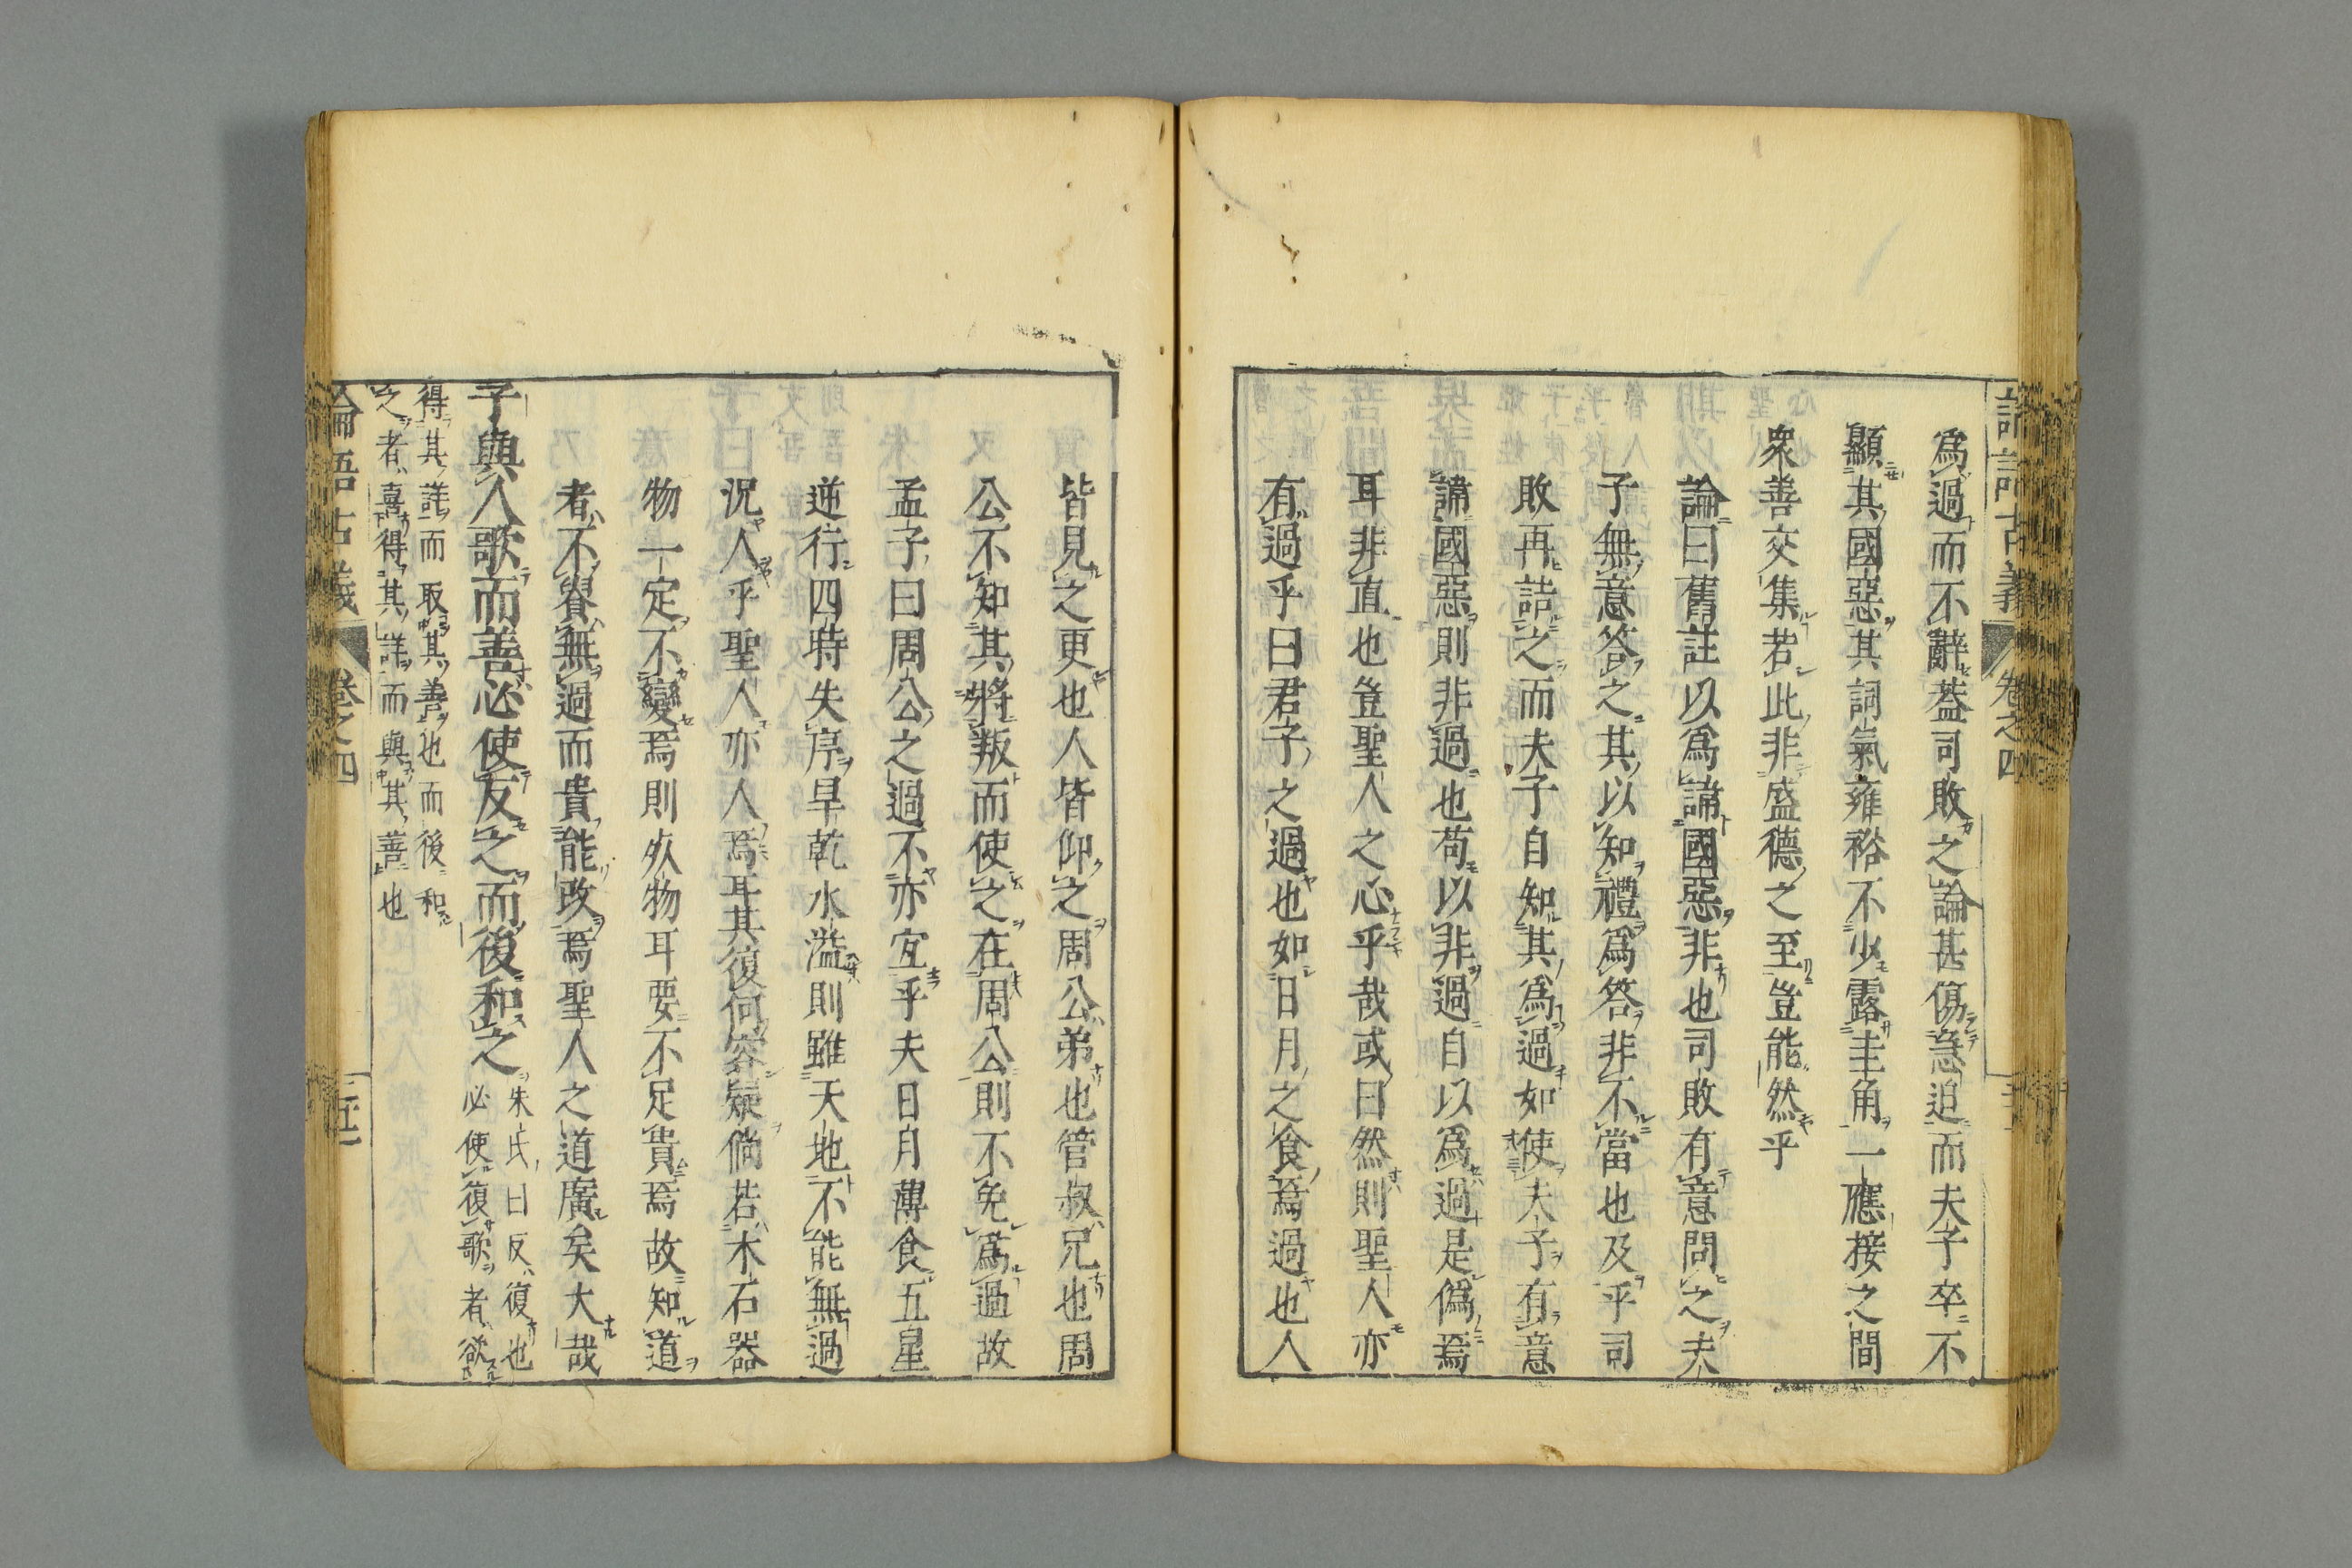 論語古義 卷之四
爲過而不辭葢司敗之論甚傷急迫而夫子卒不
顯其國惡其詞氣雍裕不少露圭角一應接之間
衆善交集若此非盛德之至豈能然乎
論曰舊註以爲諱國惡非也司敗有意問之夫
子無意答之其以知禮爲答非不當也及乎司
敗再詰之而夫子自知其爲過如使夫子有意
諱國惡則非過也苟以非過自以爲過是僞焉
耳非直也豈聖人之心乎哉或曰然則聖人亦
有過乎曰君子之過也如日月之食焉過也人
皆見之更也人皆仰之周公弟也管叔兄也周
公不知其將叛而使之在周公則不免爲過故
孟子曰周公之過不亦宜乎夫日月薄食五星
逆行四時失序旱乾水溢則雖天地不能無過
況人乎聖人亦人焉耳其復何容疑倘若木石器
物一定不變焉則死物耳要不足貴焉故知道
者不貴無過而貴能改焉聖人之道廣矣大哉
子與人歌而善必使反之而後和之
朱氏曰反復也
必使復歌者欲
得其詳而取其善也而後和
之者喜得其詳而與其善也
論語古義 卷之四